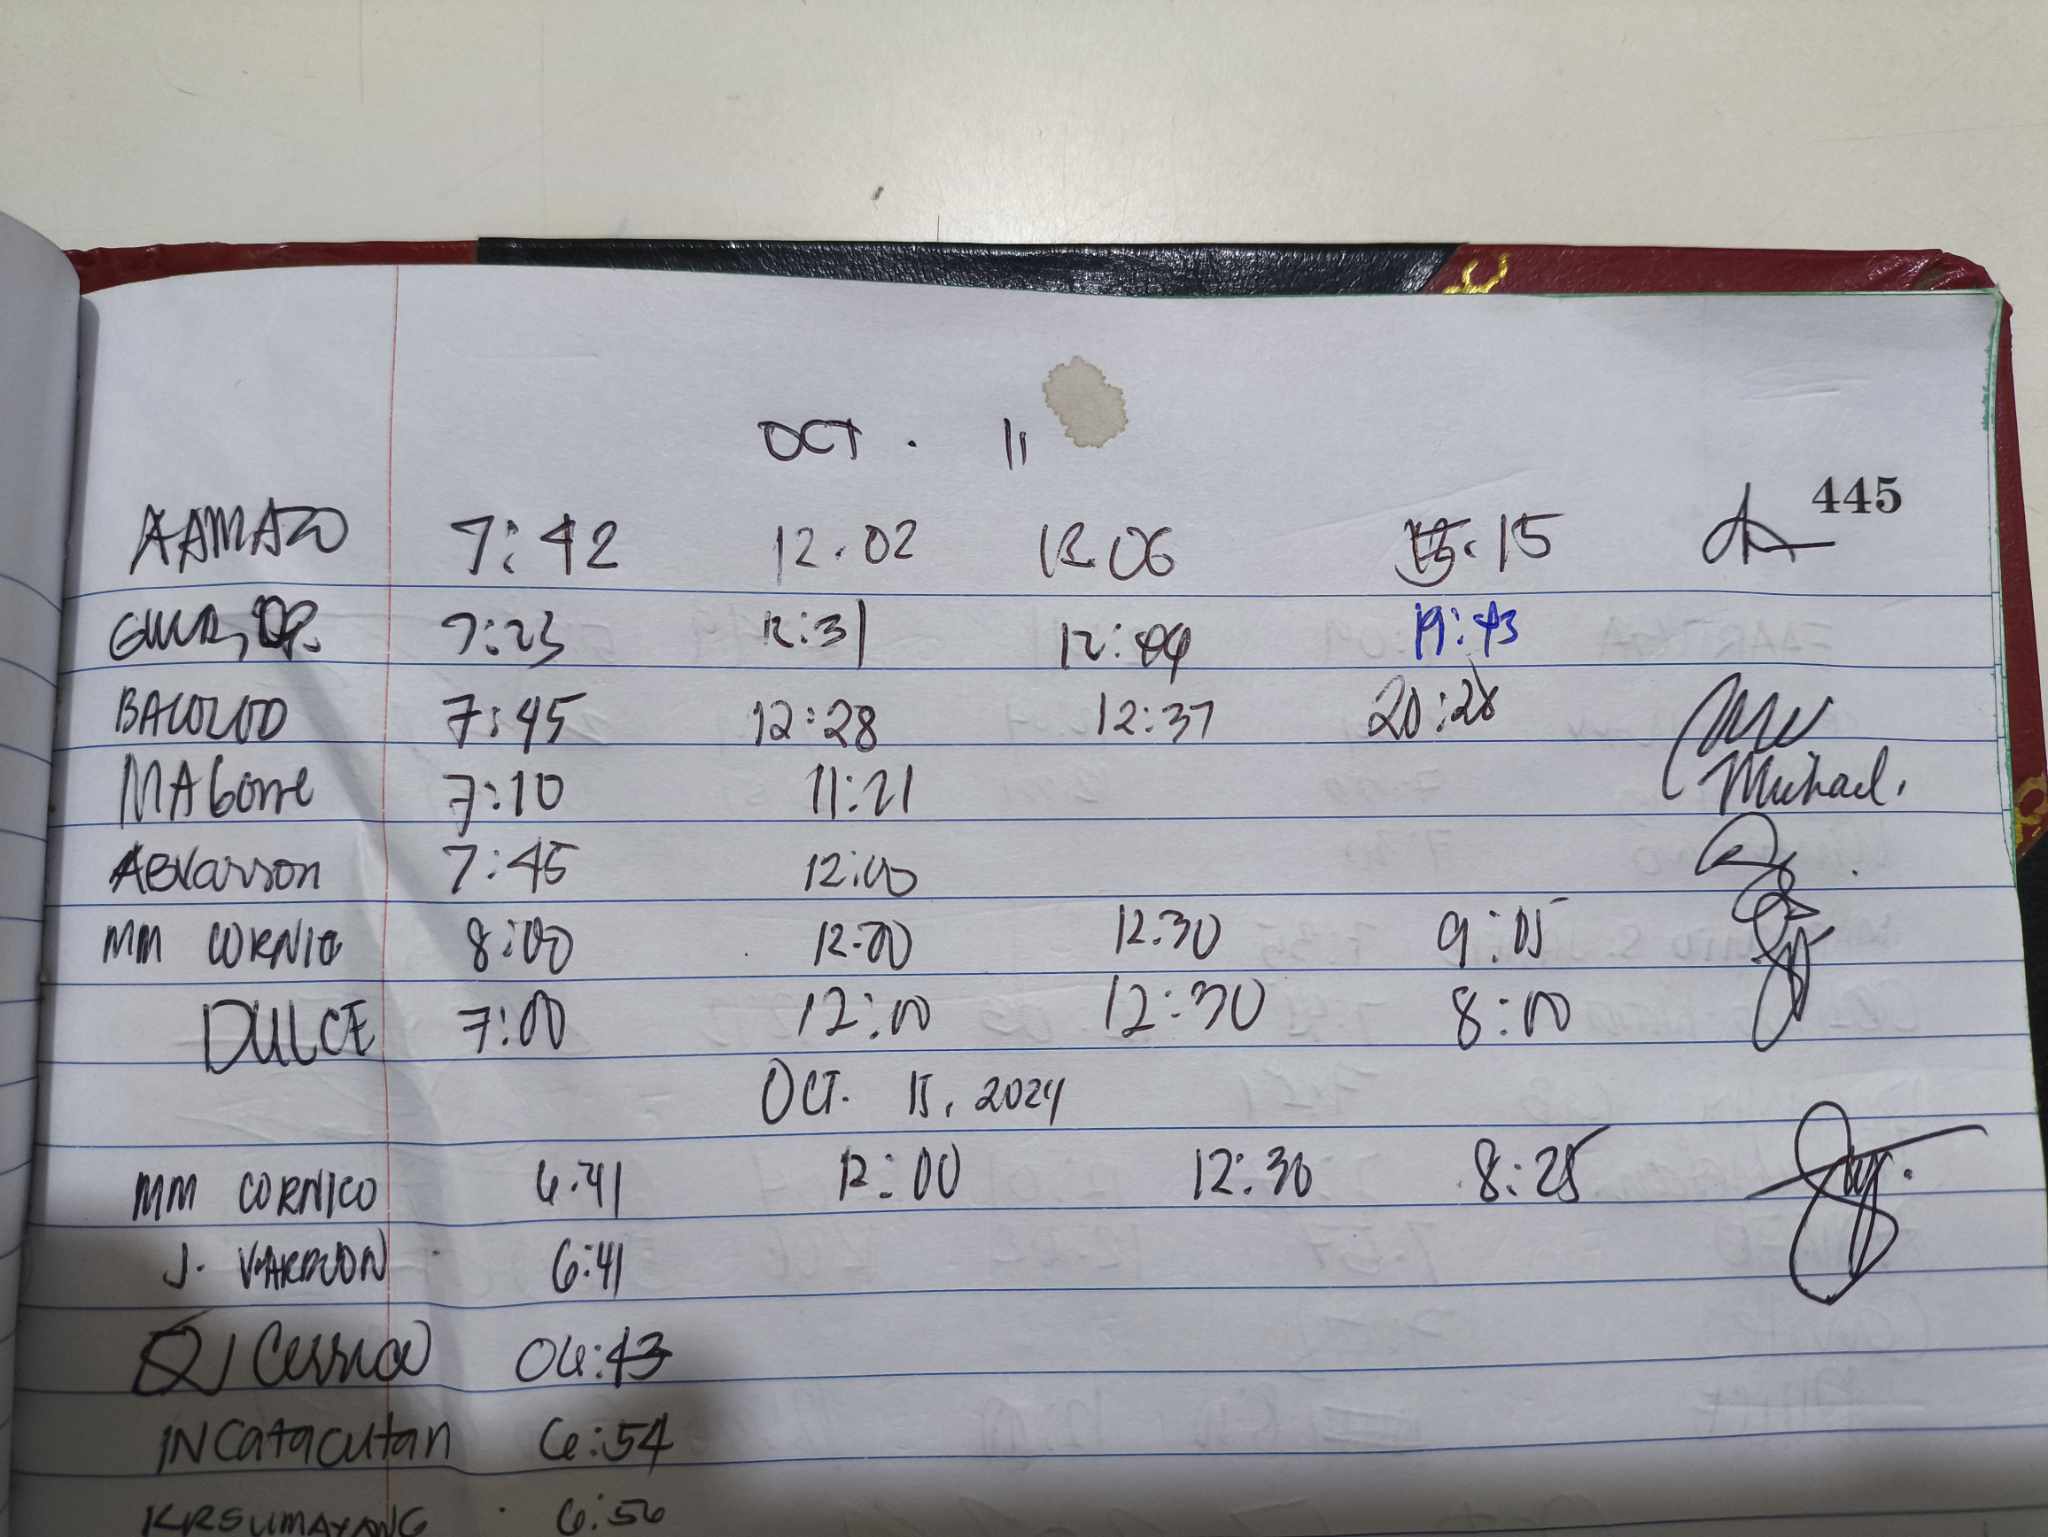 OCT. 11
445
AAMATO 7:42 12.02 12.06 15
7:23 12:31 12:44 19:43
BACOLOD 7:45 12:28 12:37 20:28
MAGorre 7:10 11:21 Michael.
ABVarron 7:45 12:00
MM CORNICO 8:00 12:00 12:30 9:05
DULCE 7:00 12:00 12:30 8:00
OCT. 15, 2024
MM CORNICO 6:41 12:00 12:30 8:25
J. 6:41
06:43
INCatacutan 6:54
KRSUMAYANG 6:56